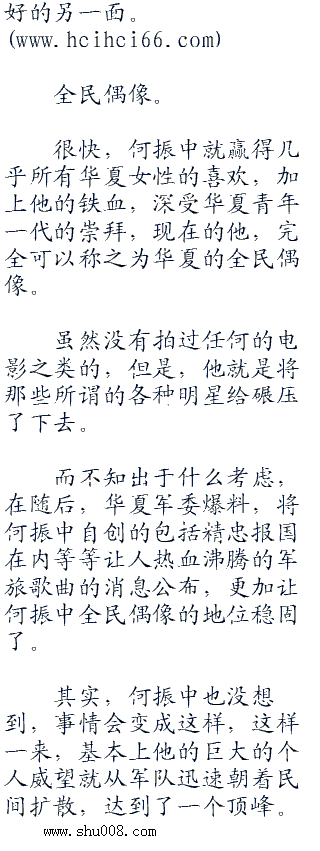 好的另一面。
(www.hcihci66.com)
全民偶像。
很快，何振中就赢得几
乎所有华夏女性的喜欢，加
上他的铁血，深受华夏青年
一代的崇拜，现在的他，完
全可以称之为华夏的全民偶
像。
虽然没有拍过任何的电
影之类的，但是，他就是将
那些所谓的各种明星给碾压
了下去。
而不知出于什么考虑，
在随后，华夏军委爆料，将
何振中自创的包括精忠报国
在内等等让人热血沸腾的军
旅歌曲的消息公布，更加让
何振中全民偶像的地位稳固
了。
其实，何振中也没想
到，事情会变成这样，这样
一来，基本上他的巨大的个
人威望就从军队迅速朝着民
间扩散，达到了一个顶峰。
www.shu008.com